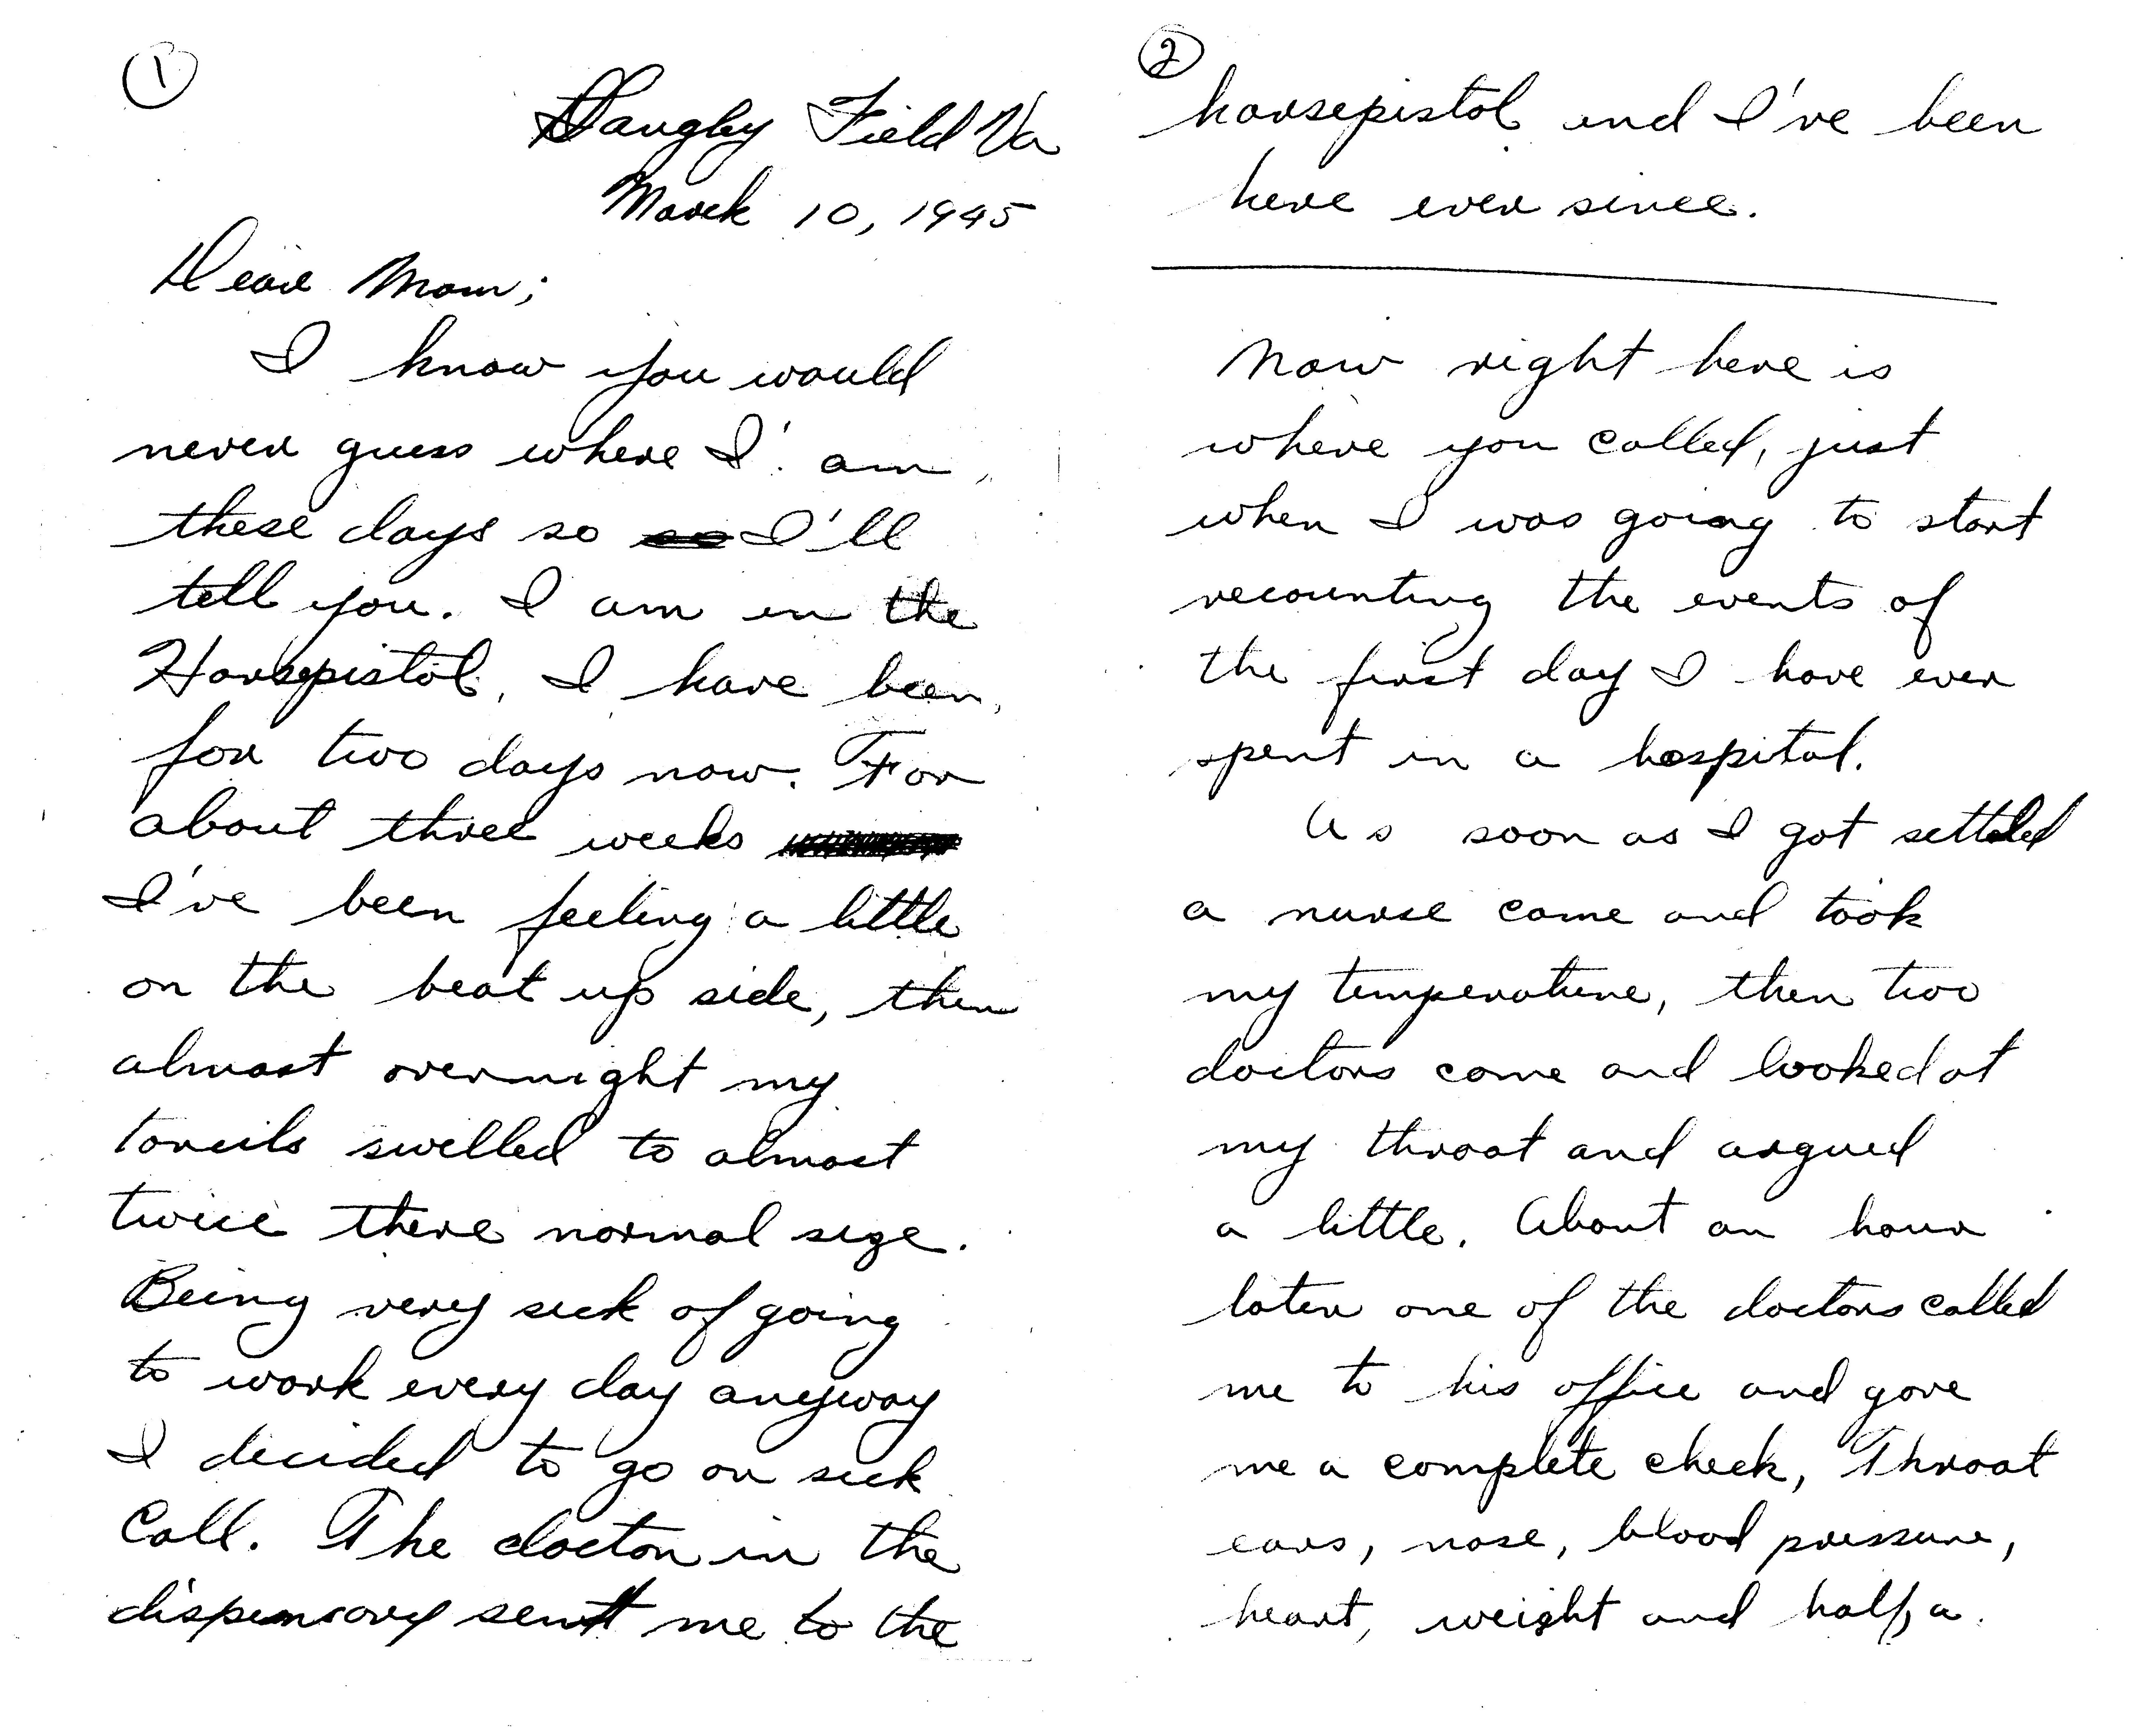 1
Langley Field Va
March 10, 1945
Dear Mom;
I know you would
never guess where I' am
these days so so I'll
tell you. I am in the
Horsepistol, I have been
for two days now. For
about three weeks
I've been feeling a little
on the beat up side, then
almost overnight my
toncils swelled to almost
twice there normal size.
Being very sick of going
to work every day anyway
I decided to go on sick
Call. The doctor in the
dispensary sent me to the
2
horsepistol and I've been
here ever since.
Now right here is
where you called, just
when I was going to start
recounting the events of
the first day I have ever
spent in a hospital.
As soon as I got settled
a nurse came and took
my temperature, then two
doctors come and looked at
my throat and argued
a little. About an hour
later one of the doctors called
me to his office and gave
me a complete check, Throat
ears, nose, blood pressure,
heart, weight and half a